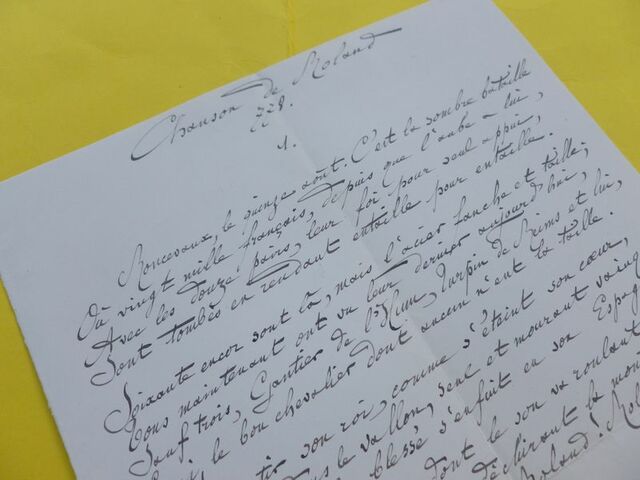 Chanson de Roland
778.
1.
Roncevaux, le quinze août. C'est la sombre bataille
Où vingt mille français, depuis que l'aube a lui,
Avec les douze pairs, leur foi pour seul appui,
Sont tombés en rendant entaille pour entaille.
Soixante encor sont là, mais l'acier tranche et taille;
Tous maintenant ont vu leur dernier aujourd'hui,
Sauf trois, Gautier de l'Hum, Turpin de Reims et lui,
le bon chevalier dont aucun n'eut la taille.
son roi, comme s'éteint son cœur,
le vallon, seul et mourant
blessé s'enfuit en son
dont le son va roulant
déchirant la
Roland!